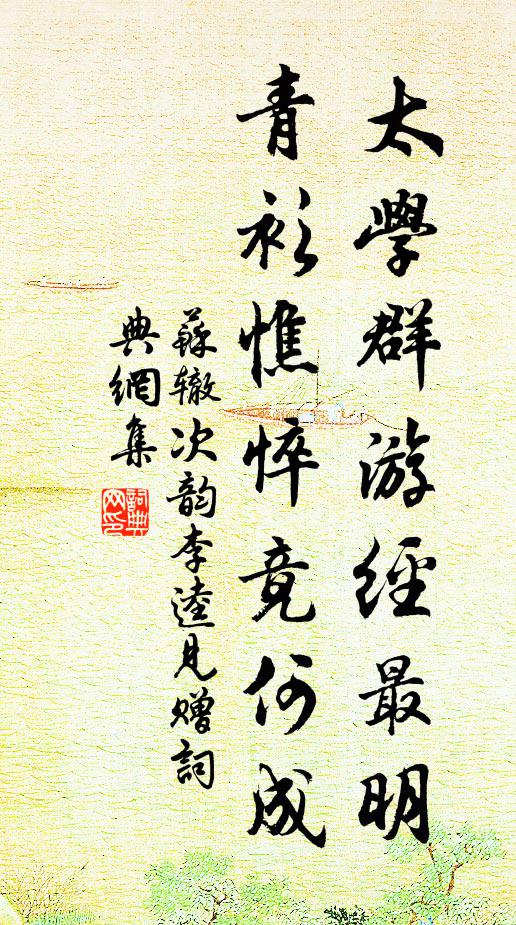 太學群游經最明
青衫憔悴竟何成
蘇辙次韵李逵见赠詞
典網集
詞典
网印